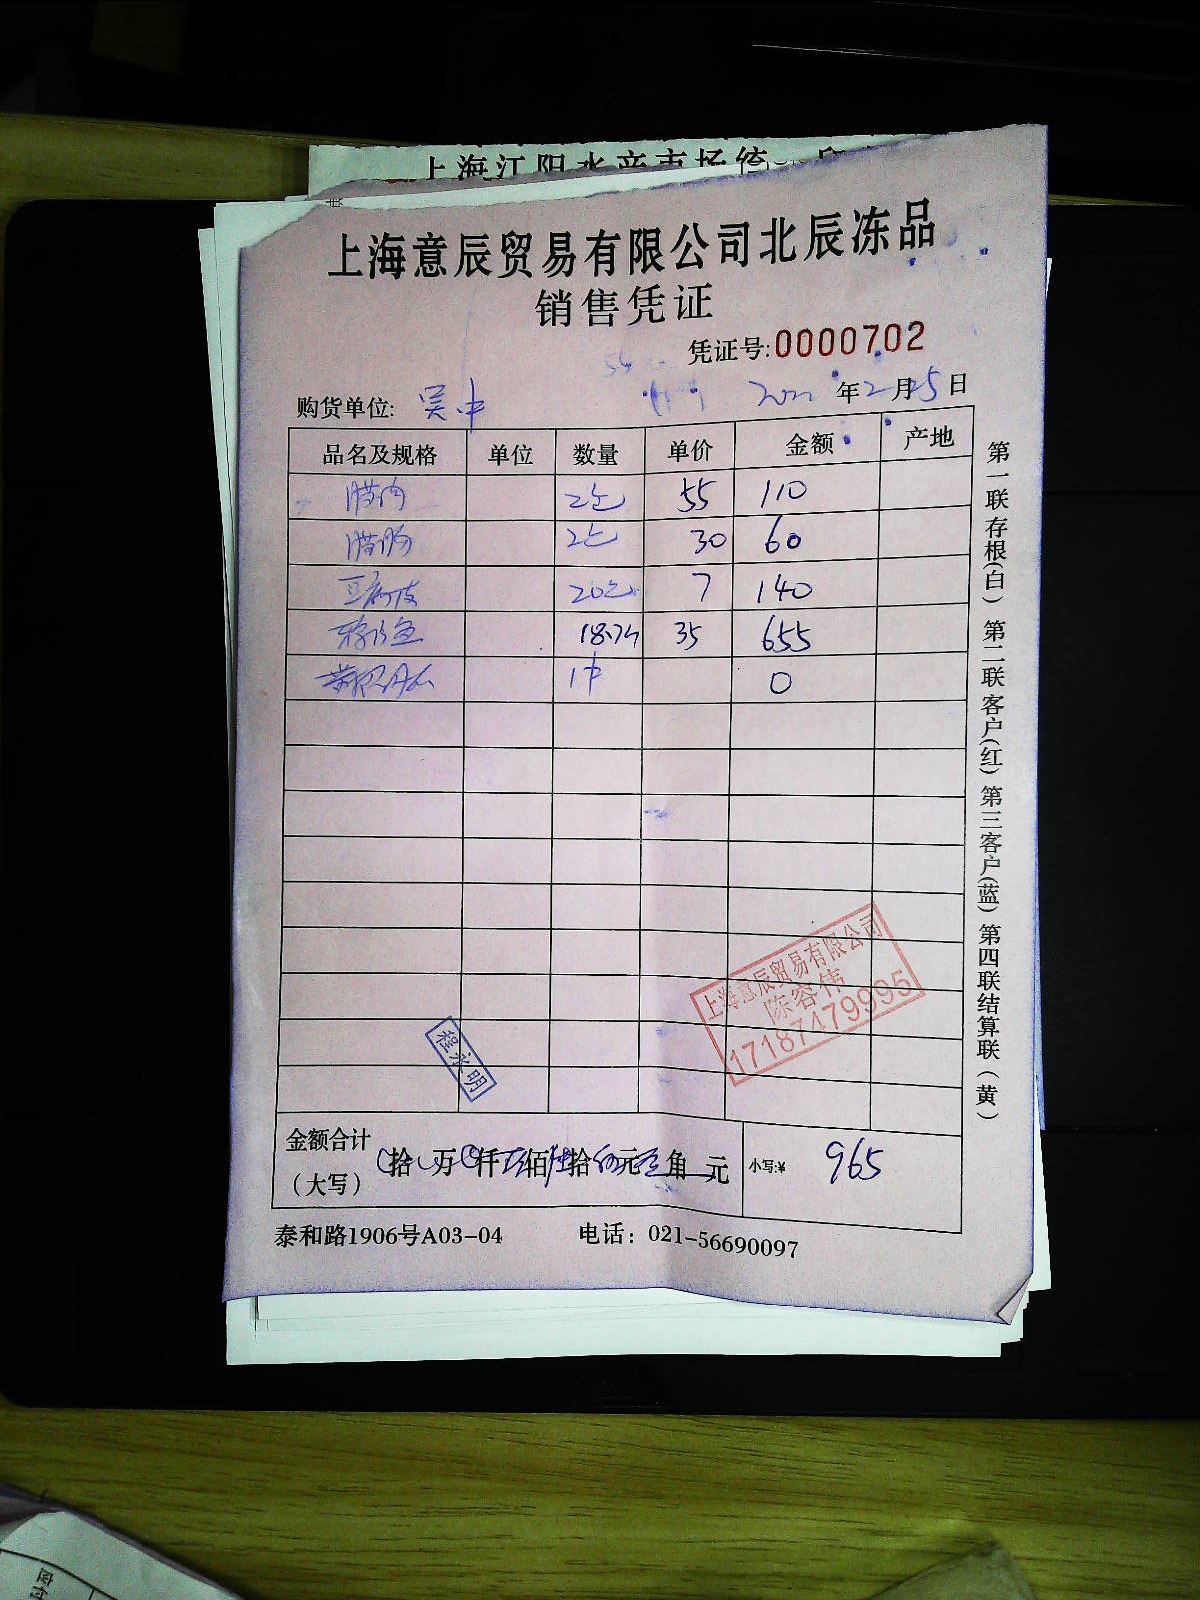 上海江阳水产市场统
上海意辰贸易有限公司北辰冻品
销售凭证
凭证号:0000702
购货单位: 吴中 年2月25日
品名及规格 单位 数量 单价 金额 产地
腊肉 2包 55 110
腊肠 2包 30 60
豆腐皮 20包 7 140
18.7斤 35 655
1件 0
上海意辰贸易有限公司
陈容伟
17187479995
程永明
金额合计
(大写) 拾 万 仟 玖佰 陆拾 伍元 角 元 小写:¥ 965
泰和路1906号A03-04 电话: 021-56690097
第一联存根(白) 第二联客户(红) 第三客户(蓝) 第四联结算联(黄)